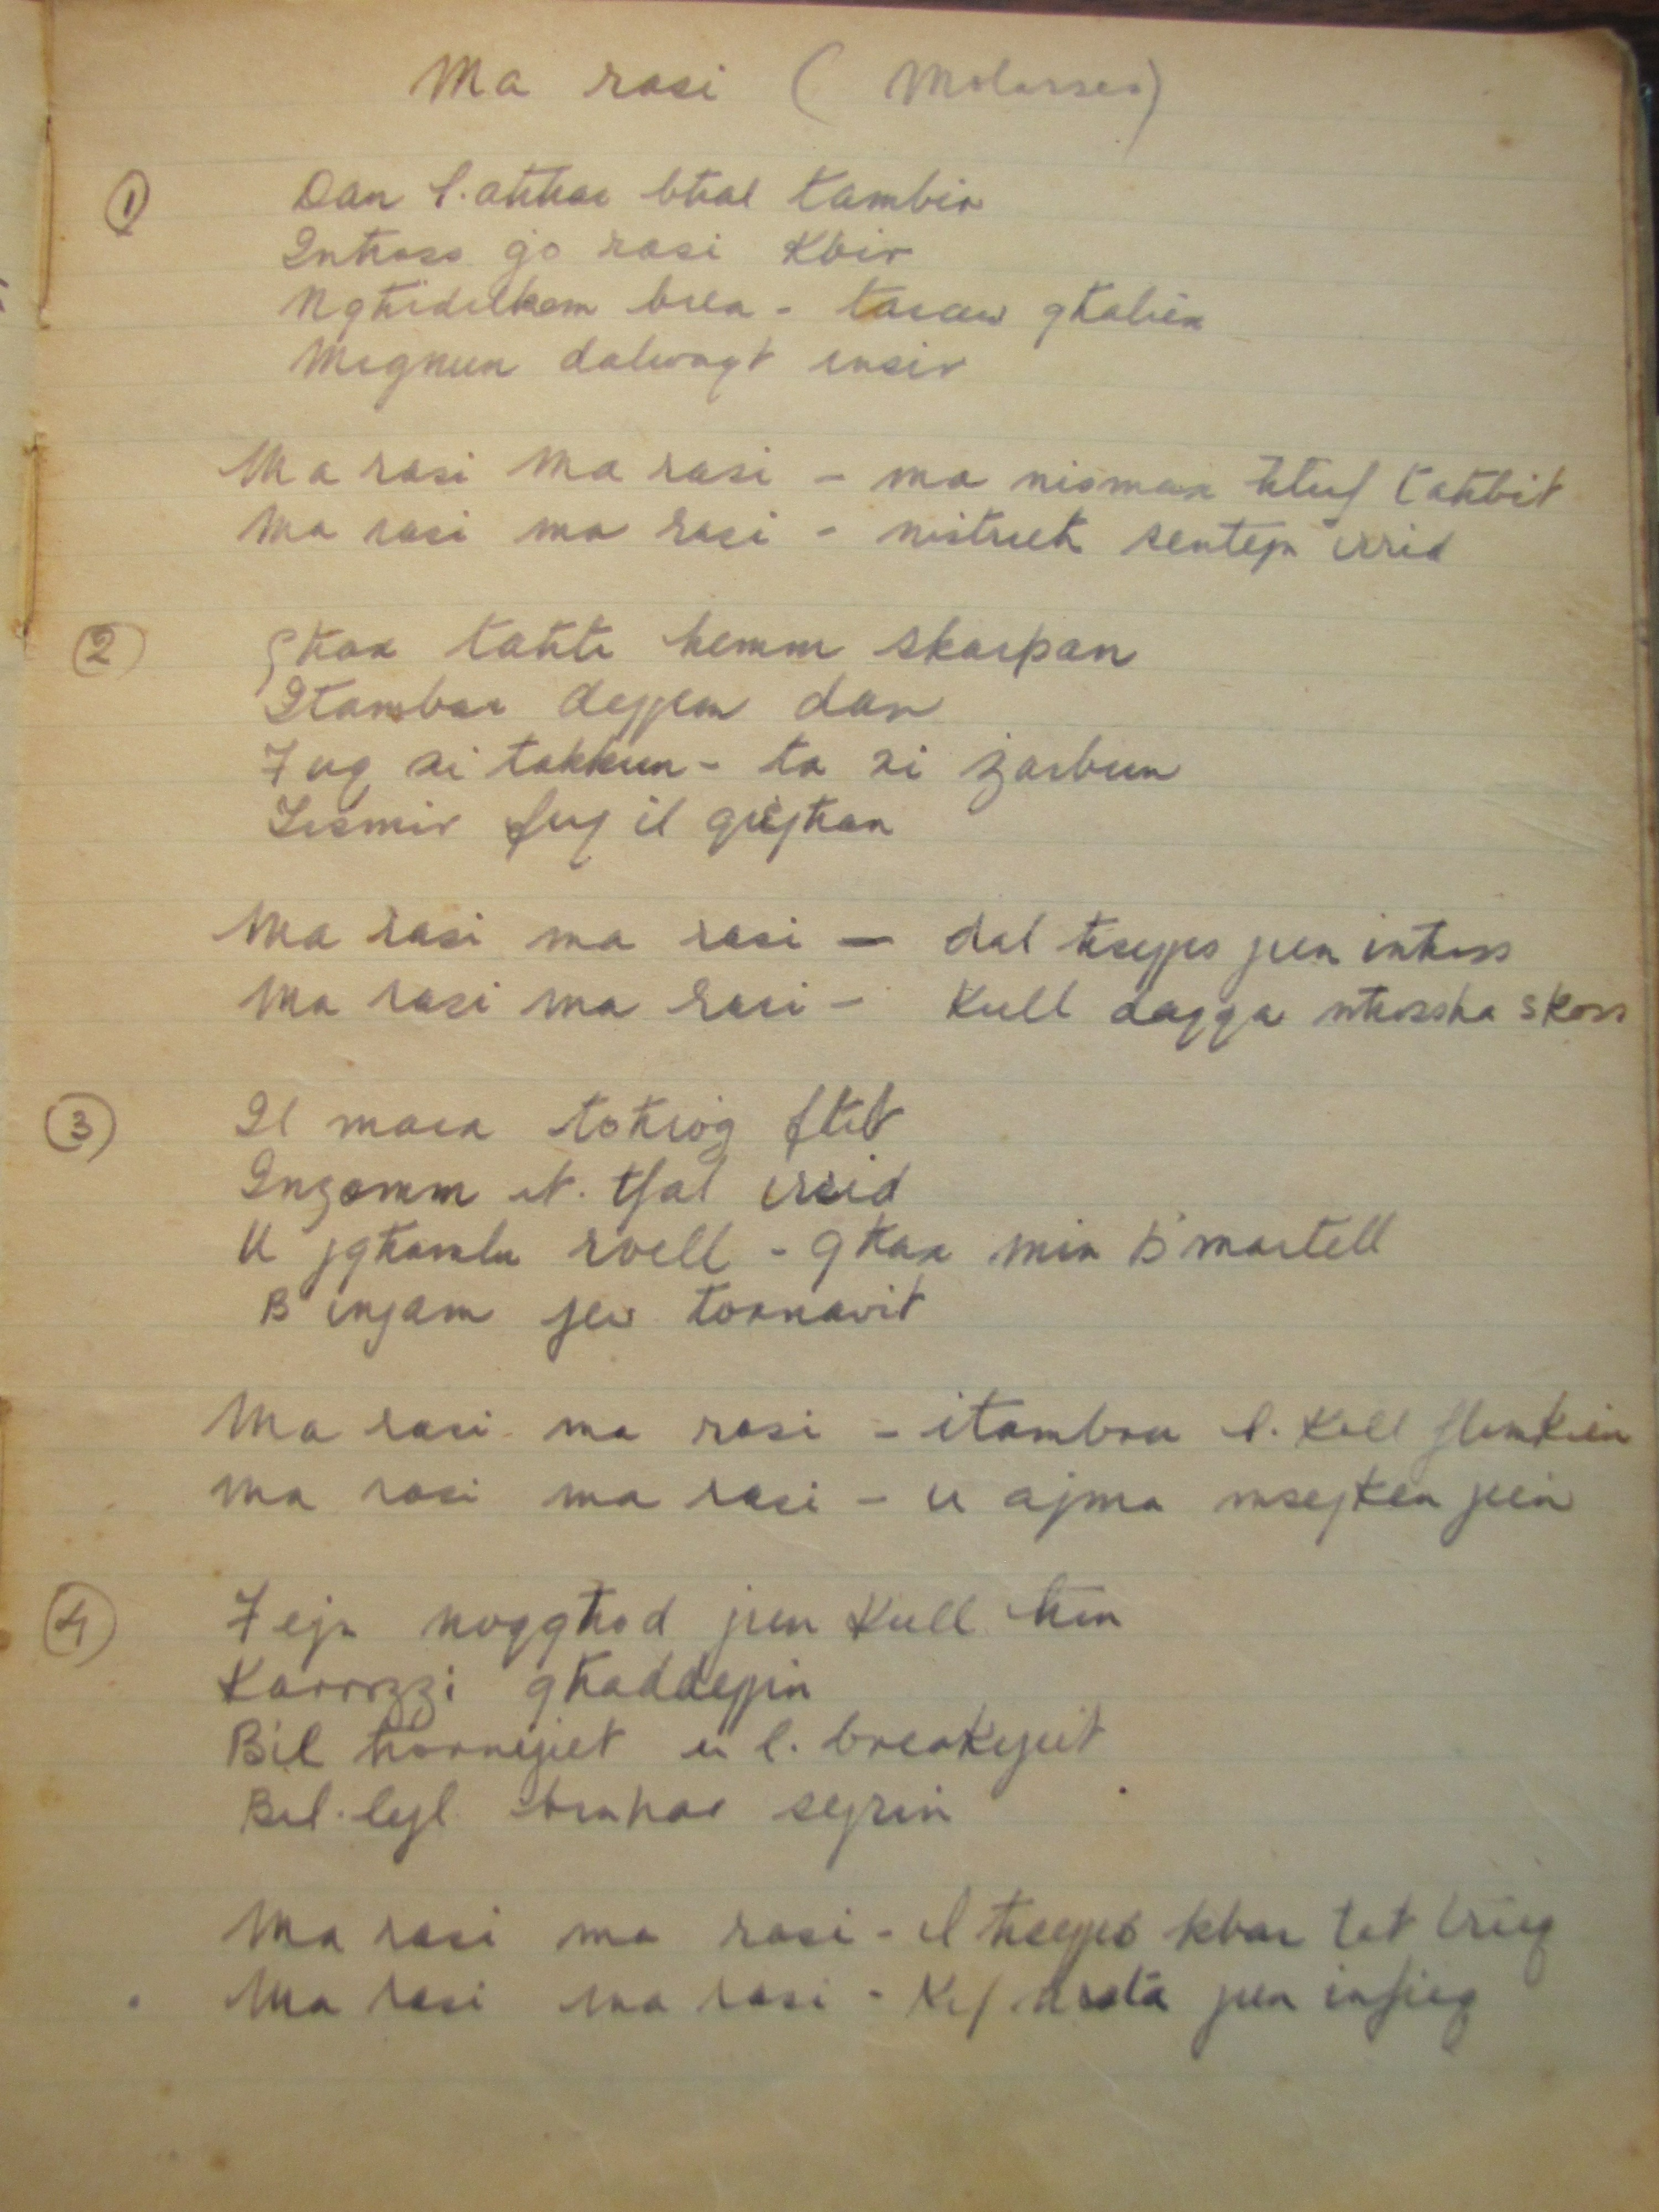 Ma rasi ( Molasses)
① Dan l. ahhar bhal tambin
Inhoss go rasi Kbir
Nghidilkom biex - taraw ghaliex
Mignun dalwaqt insir
Ma rasi Ma rasi - ma nismax hluf tahbit
Ma rasi ma rasi - nistrieh xentejn irrid
② Ghax tahti hemm skarpan
Itambar dejjem dan
Fuq xi takkun - ta xi zarbun
Jismir fuq il qieghan
Ma rasi ma rasi - dal hsejjes jien inhoss
Ma rasi ma rasi - Kull daqqa nhossha skoss
③ Il mara tohrog ftit
Inzomm it. tfal irrid
U jghamlu rvell - ghax min b'martell
B injam jew tornavit
Ma rasi ma rasi - itambru l. Koll flimkien
Ma rasi ma rasi - u ajma msejken jien
④ Fejn noqghod jien Kull hin
Karrozzi ghaddejjin
Bil hornijiet u l. breakijiet
Bil. lejl binhar sejrin
Ma rasi ma rasi - il hsejjes kbar tat trieq
Ma rasi ma rasi - Kif jien infieq